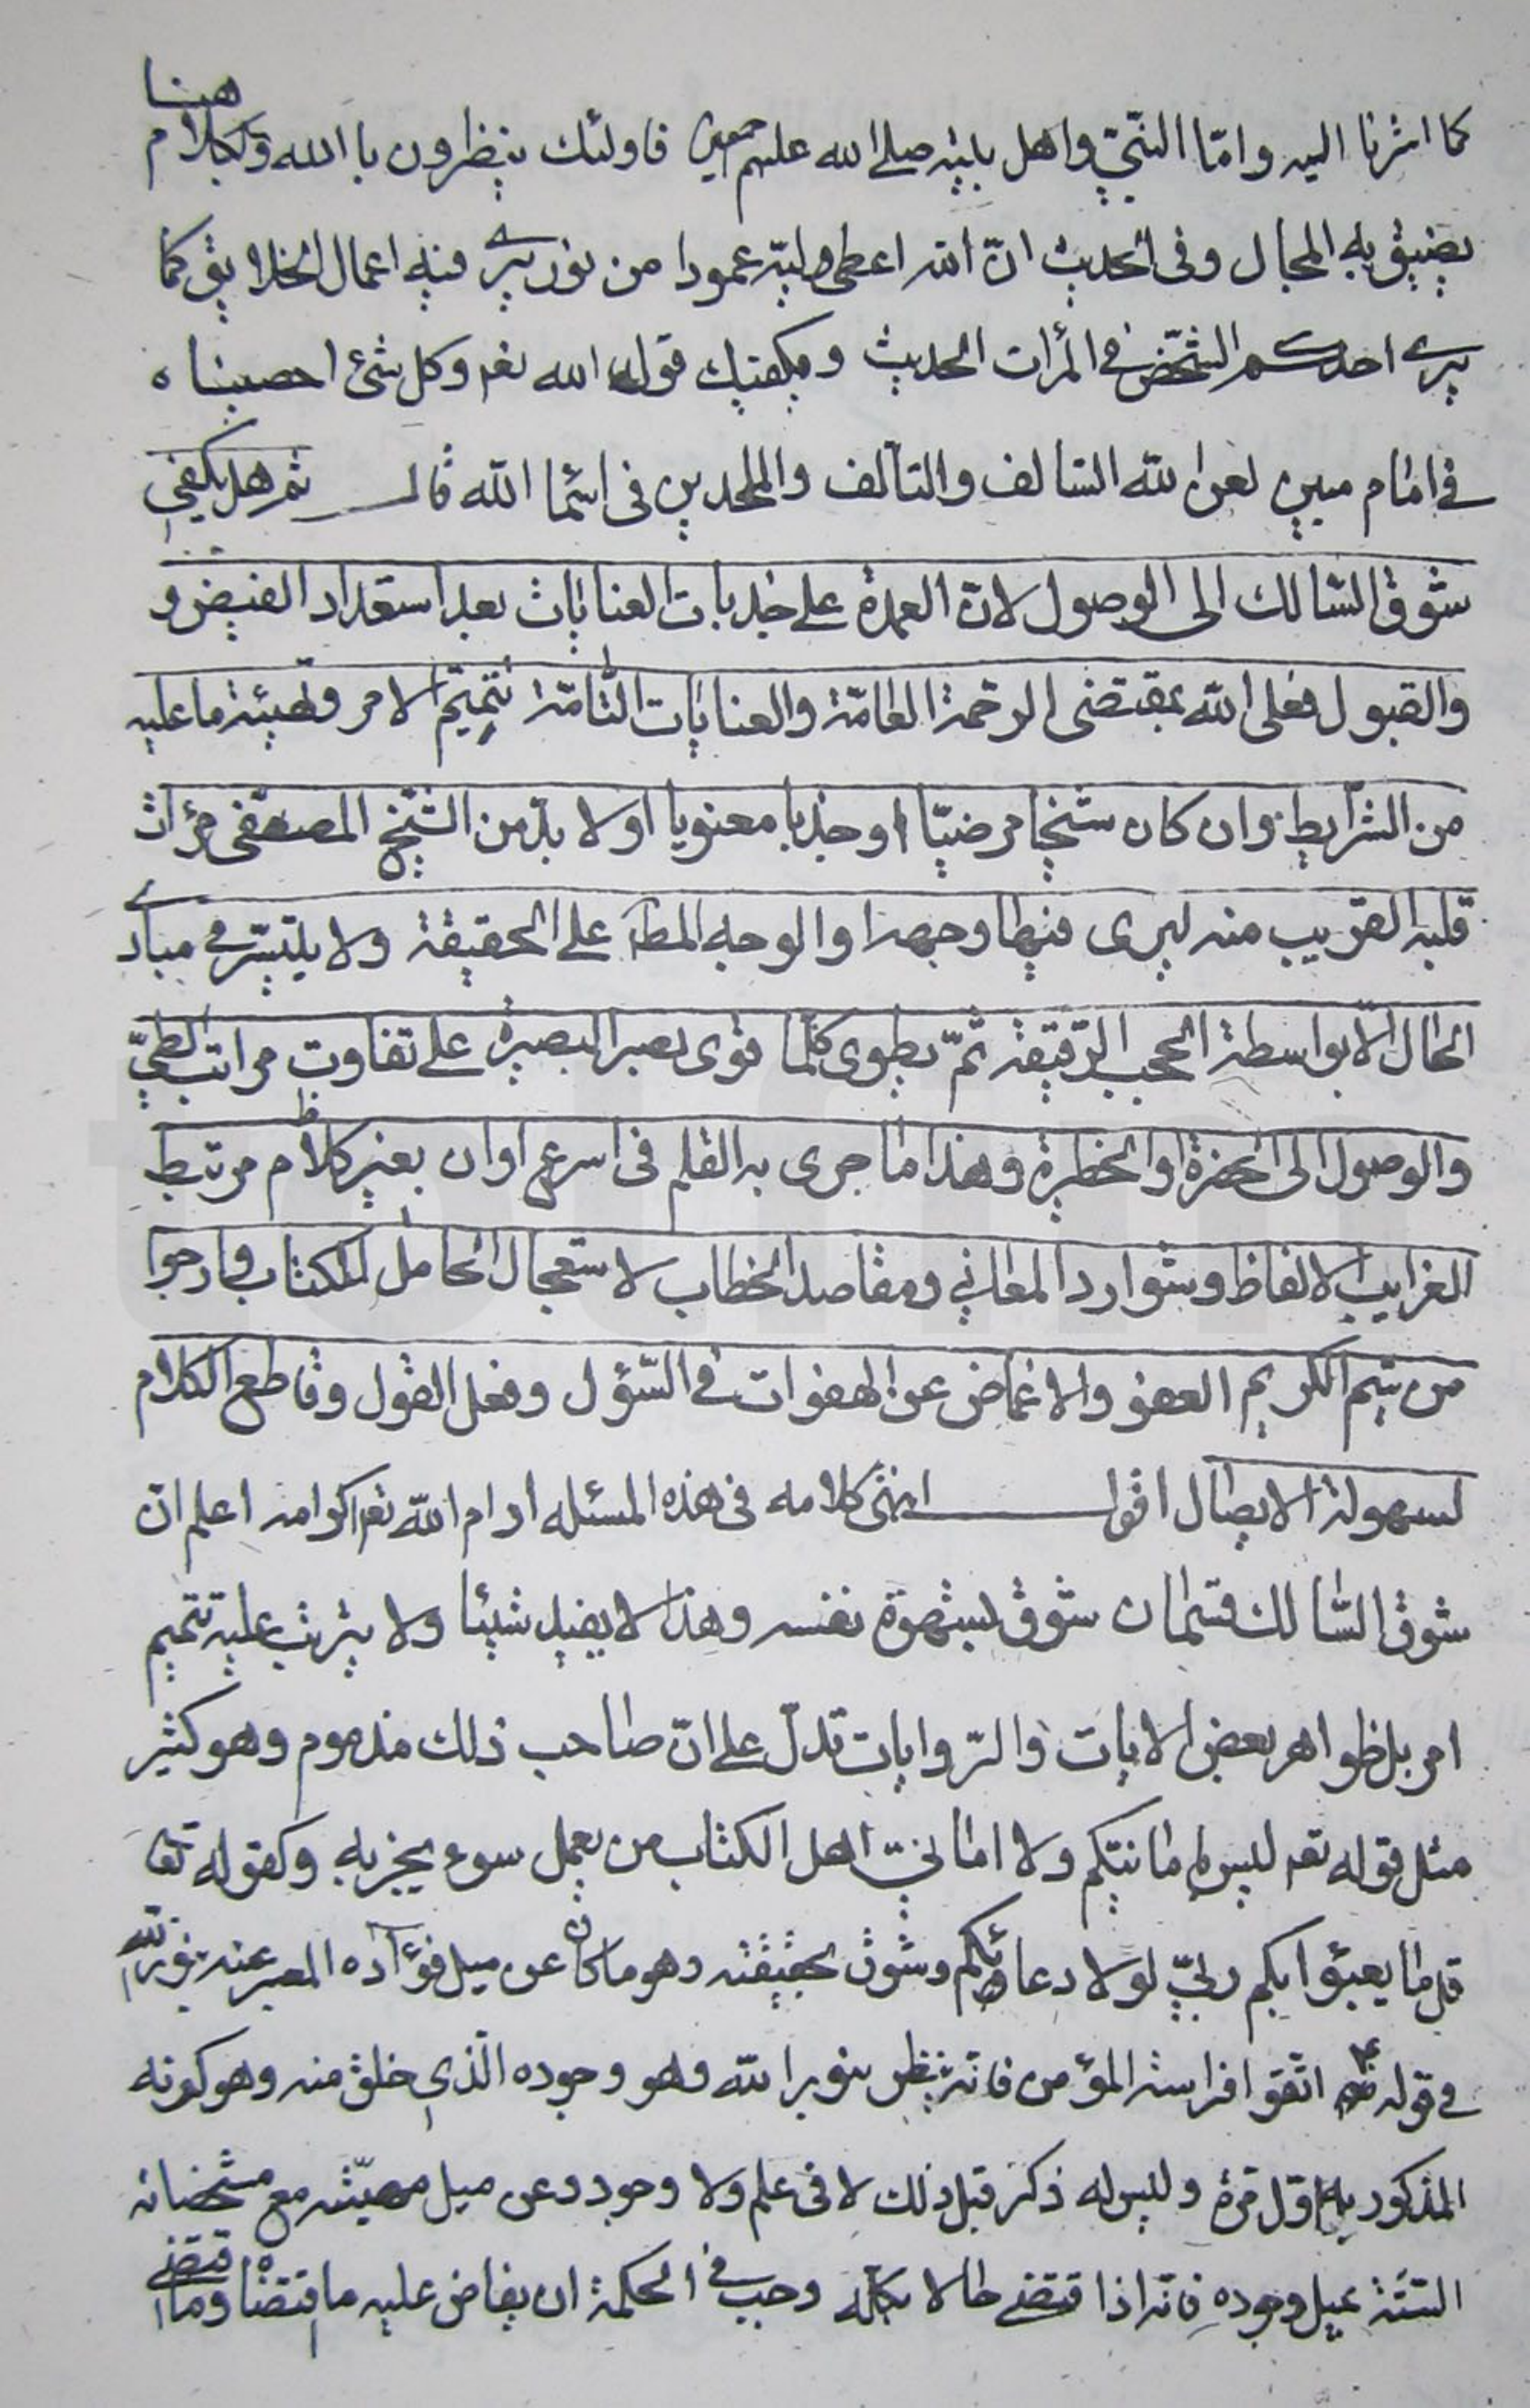 كما اشرنا اليه وامّا النبّي واهل بيته صلى الله عليهم اجمعين فاولئك ينظرون با الله والكلام هنا
يضيق به المجال وفى الحديث انّ الله اعطى وليّه عمودا من نور يرى فيه اعمال الخلايق كما
يرى احدكم الشخّص فى المرأت الحديث ويكفيك قوله الله تعر وكل شئ احصيناه
فى امام مبين لعن الله السالف والتالف والملحدين فى اسما الله قال ثم هل يكفى
شوق السّالك الى الوصول لانّ العمدة على جذبات العنايات بعد استعداد الفيض و
والقبول فعلى الله بمقتضى الرحمة العامّة والعنايات التّامّة تتميم الامر وتهيئة ما عليه
من الشرايط وان كان شيخا مرضيّا او جذبا معنويا اولا بدّ من الشيخ المصفى مرات
قلبه القريب منه ليرى فيها وجهه والوجه المط على الحقيقة ولا يتيسّر فى مبادى
الحال الّا بواسطة الحجب الرّقيقة ثمّ يطوى كلّما قوى بصر البصيرة على تفاوت مراتب الطىّ
والوصول الى الحضرة او الخطرة وهذا ما جرى به القلم فى اسرع اوان بغير كلام مرتبط
الغرايب الالفاظ وشوارد المعاني ومقاصد الخطاب لاستعجال الحامل للكتاب وارجوا
من شيم الكريم العفو والاغماض عن الهفوات فى السّؤل وفعل الفول وقاطع الكلام
لسهولة الايصال اقول انتهى كلامه فى هذه المسئله ادام الله تعر اكرامه اعلم ان
شوق السّالك قسمان شوق لشهوة نفسه وهذا لا يفيد شيئا ولا يترتب عليه تتميم
امر بل ظواهر بعض الايات والرّوايات تدلّ على انّ صاحب ذلك مذموم وهو كثير
مثل قوله تعر ليس بامانيّكم ولا امانيّ اهل الكتاب من يعمل سوء يجز به وكقوله تعا
قل ما يعبؤا بكم ربيّ لولا دعائكم وشوق لحقيقته وهو ما كان عن ميل فؤاده المعبر عنه بنور الله
فى قوله ع اتّقوا فراسة المؤمن فانّه ينظر بنور الله وهو وجوده الّذى خلق منه وهو كونه
المذكور به اوّل مرة وليس له ذكر قبل ذلك لا فى علم ولا وجود وعن ميل مهيّته مع مشخصاته
الستّة بميل وجوده فانّه اذا اقتضى حالا بكلّه وجب فى الحكمة ان يفاض عليه ما اقتضاه وما اقتضى